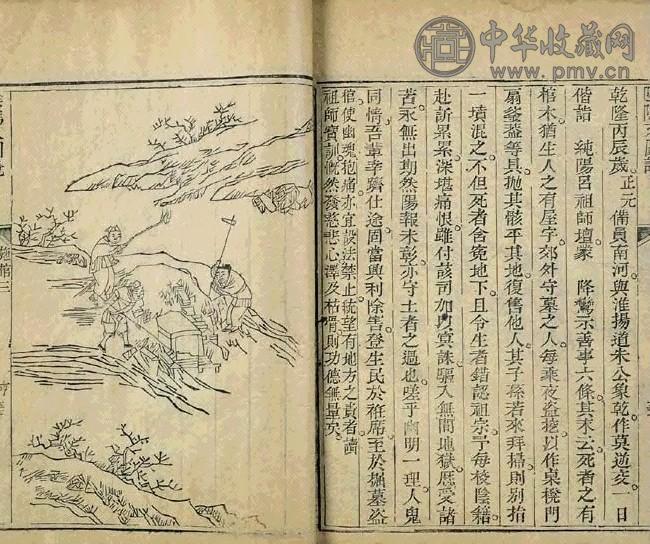 中华收藏网
www.pmv.cn
乾隆丙辰歲正元備員南河與淮揚道朱公象乾作莫逆交一日
偕詣 純陽呂祖師壇蒙 降鸞示善事六條其末云死者之有
棺木猶生人之有屋宇郊外守墓之人每乘夜盜挖以作桌櫈門
扇簽籌等具抛其骸平其地復售他人其子孫若來拜掃則别指
一墳混之不但死者含寃地下且令生者錯認祖宗予每梭陰籍
赴訴累累深堪痛恨雖付該司加以冥誅驅入無間地獄厯受諸
苦永無出期然陽報未彰亦守土者之過也嗟乎幽明一理人鬼
同情吾輩幸躋仕途固當興利除害登生民於袵席至於掘墓盜
棺使幽魂抱痛亦宜設法禁止統望有地方之責者讀
祖師寳訓慨然發慈悲心澤及枯骨則功德無量矣